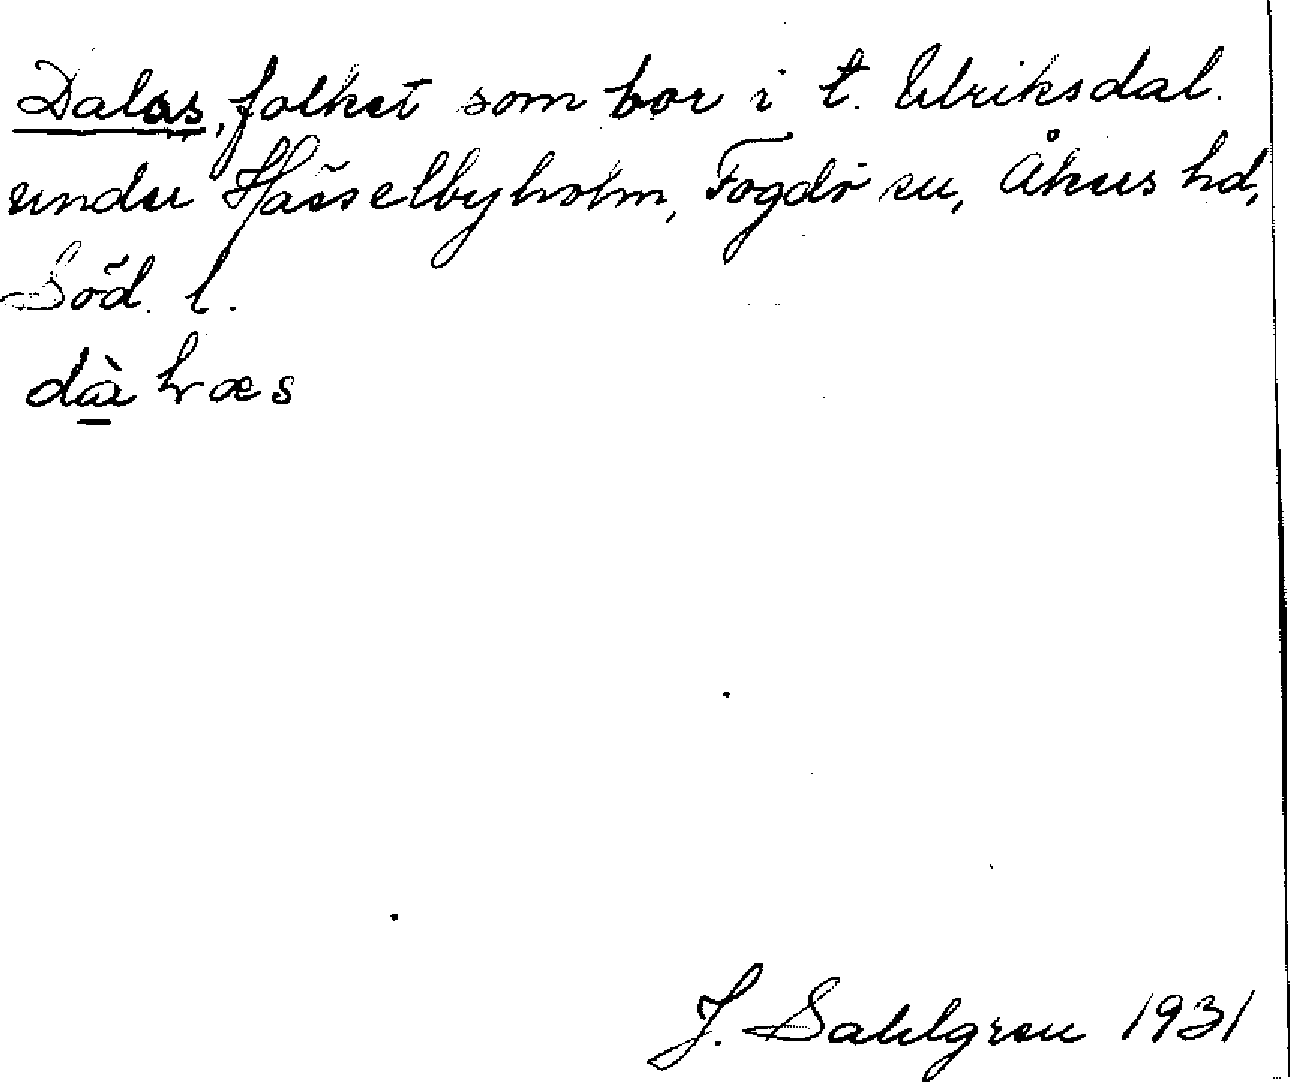 Dalas, folket som bor i t. Ulriksdal.
under Hässelbyholm, Fogdö sn, Åkers hd,
Söd. l.
J. Sahlgren 1931